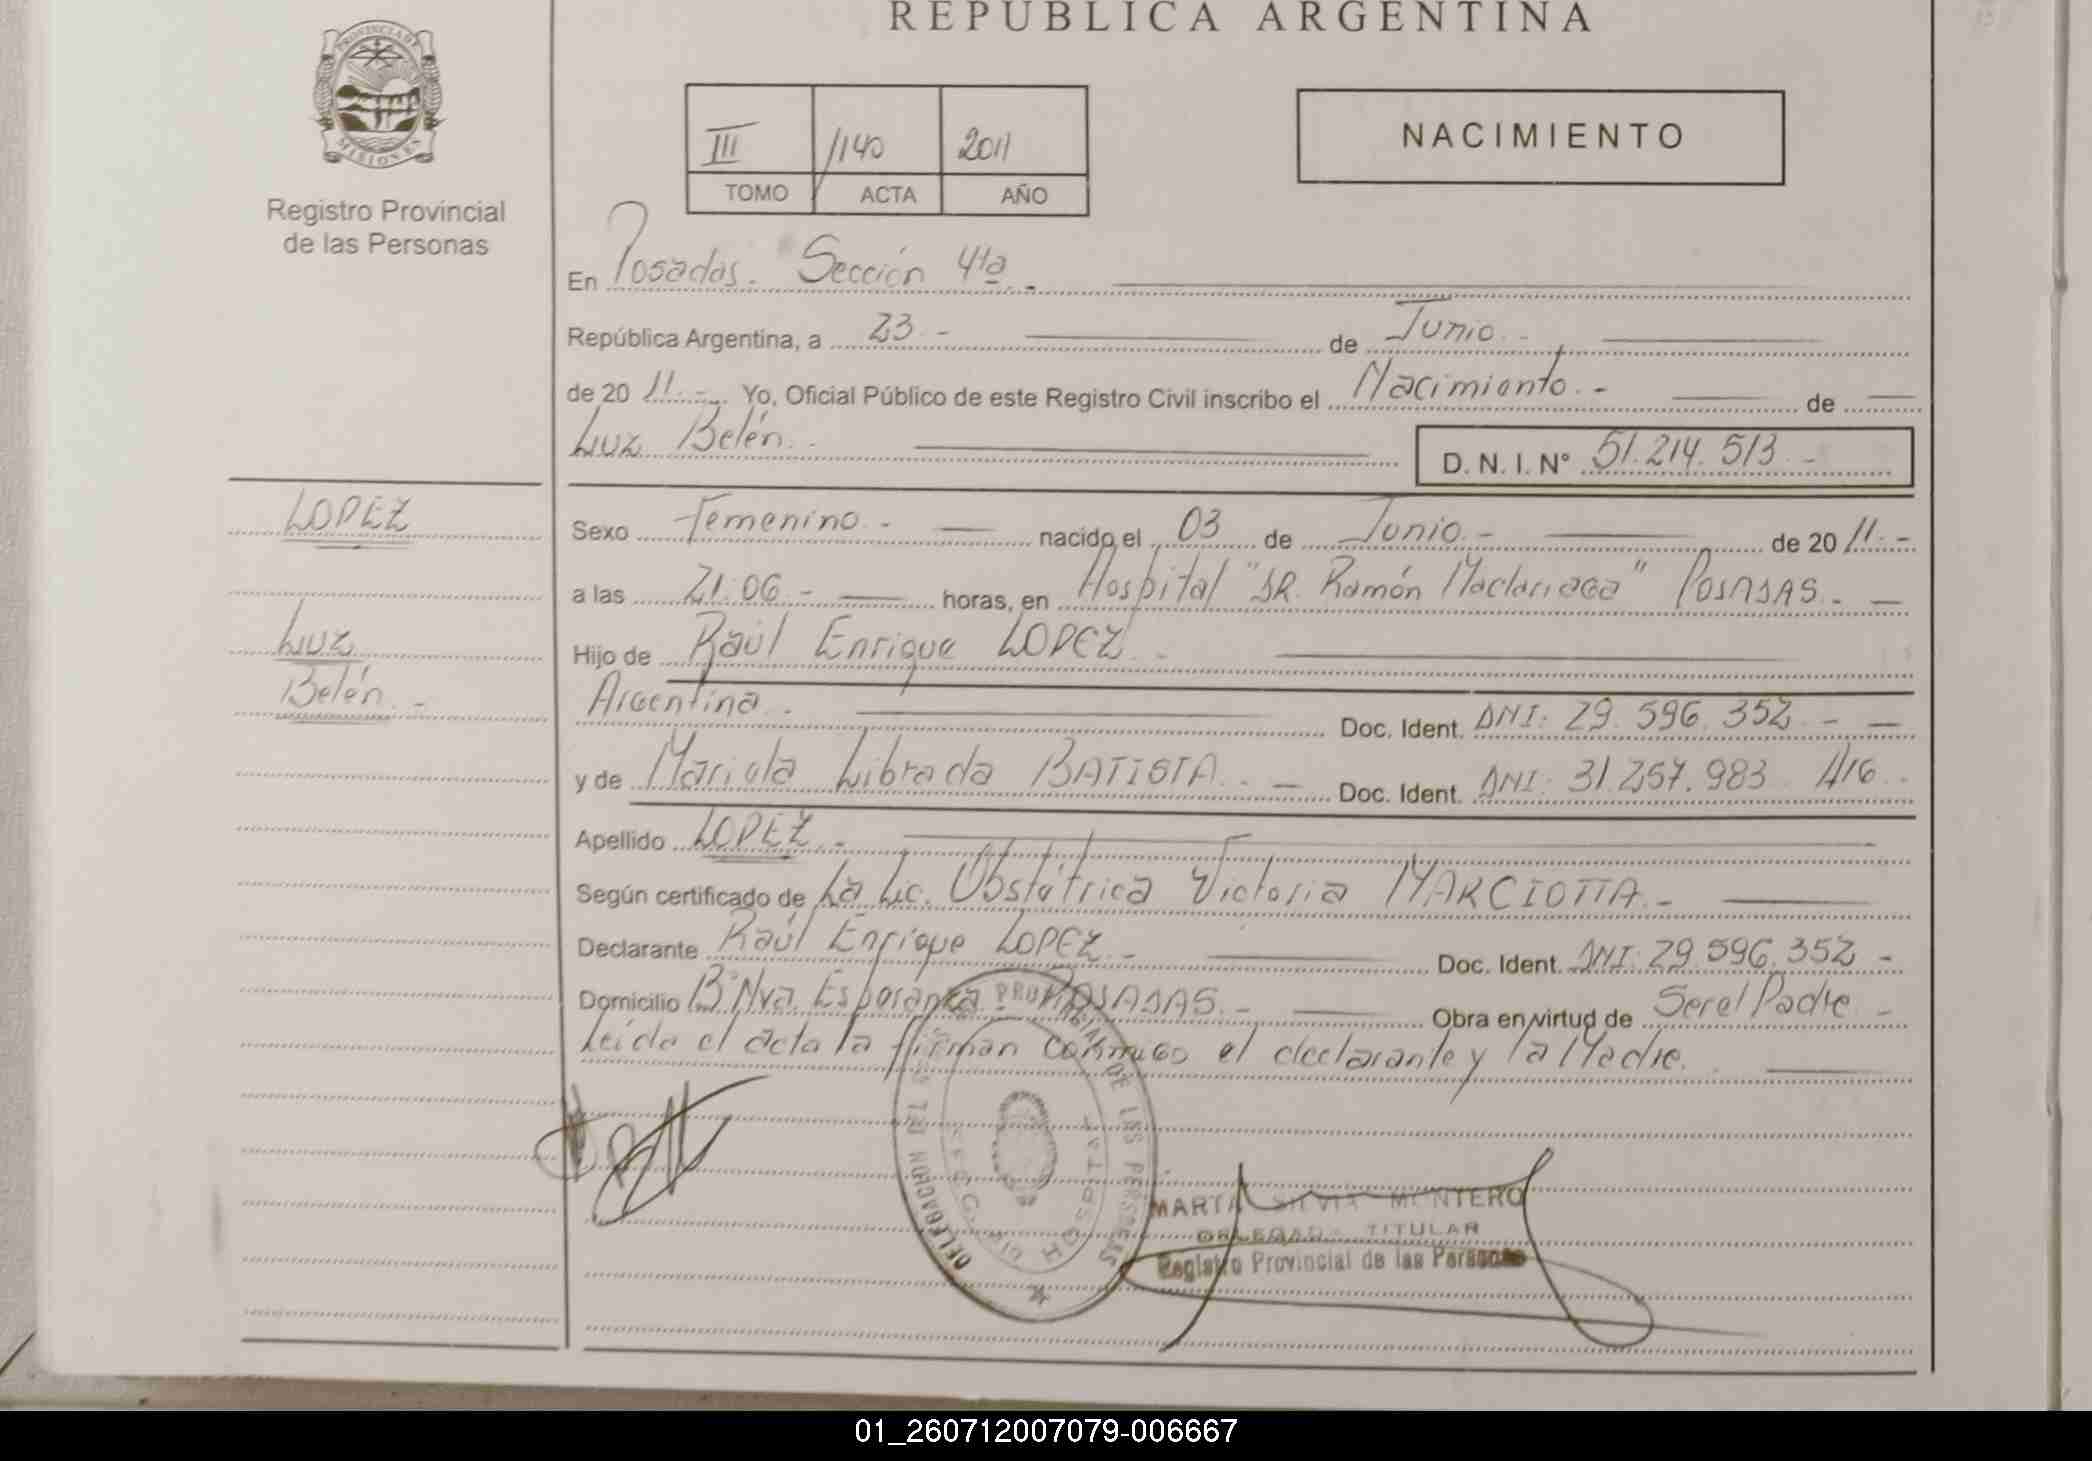 REPUBLICA ARGENTINA
PROVINCIA DE
MISIONES
Registro Provincial
de las Personas
III 1140 2011
TOMO ACTA AÑO
NACIMIENTO
En Posadas. Sección 4ta.
República Argentina, a 23.- de Junio.-
de 20 11.-. Yo, Oficial Público de este Registro Civil inscribo el Nacimiento.- de
Luz Belén.-
D. N. I. Nº 51.214.513.-
LOPEZ
Luz
Belén.-
Sexo Femenino.- nacido el 03 de Junio.- de 20 11.-
a las 21:06.- horas, en Hospital "DR. Ramón Madariaga" POSADAS.-
Hijo de Raúl Enrique LOPEZ.-
Argentina.- Doc. Ident. DNI: 29.596.352.-
y de Mariela Librada BATISTA.- Doc. Ident. DNI: 31.257.983
Apellido LOPEZ.-
Según certificado de La Lic. Obstétrica Victoria MARCIOTTA.-
Declarante Raúl Enrique LOPEZ.- Doc. Ident. DNI: 29.596.352.-
Domicilio Bº Nva. Esperanza. POSADAS.- Obra en virtud de Ser el Padre.-
Leída el acta la firman conmigo el declarante y la Madre.
DELEGACION
DE LAS PERSONAS
HOSPITAL
MARTA SILVIA MONTERO
DELEGADA TITULAR
Registro Provincial de las Personas
01_260712007079-006667